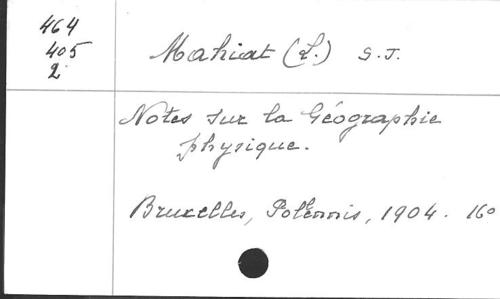 464
405
2
Mahiat (L.) S.J.
Notes sur la Géographie
physique.
Bruxelles, Polleunis, 1904. 16o